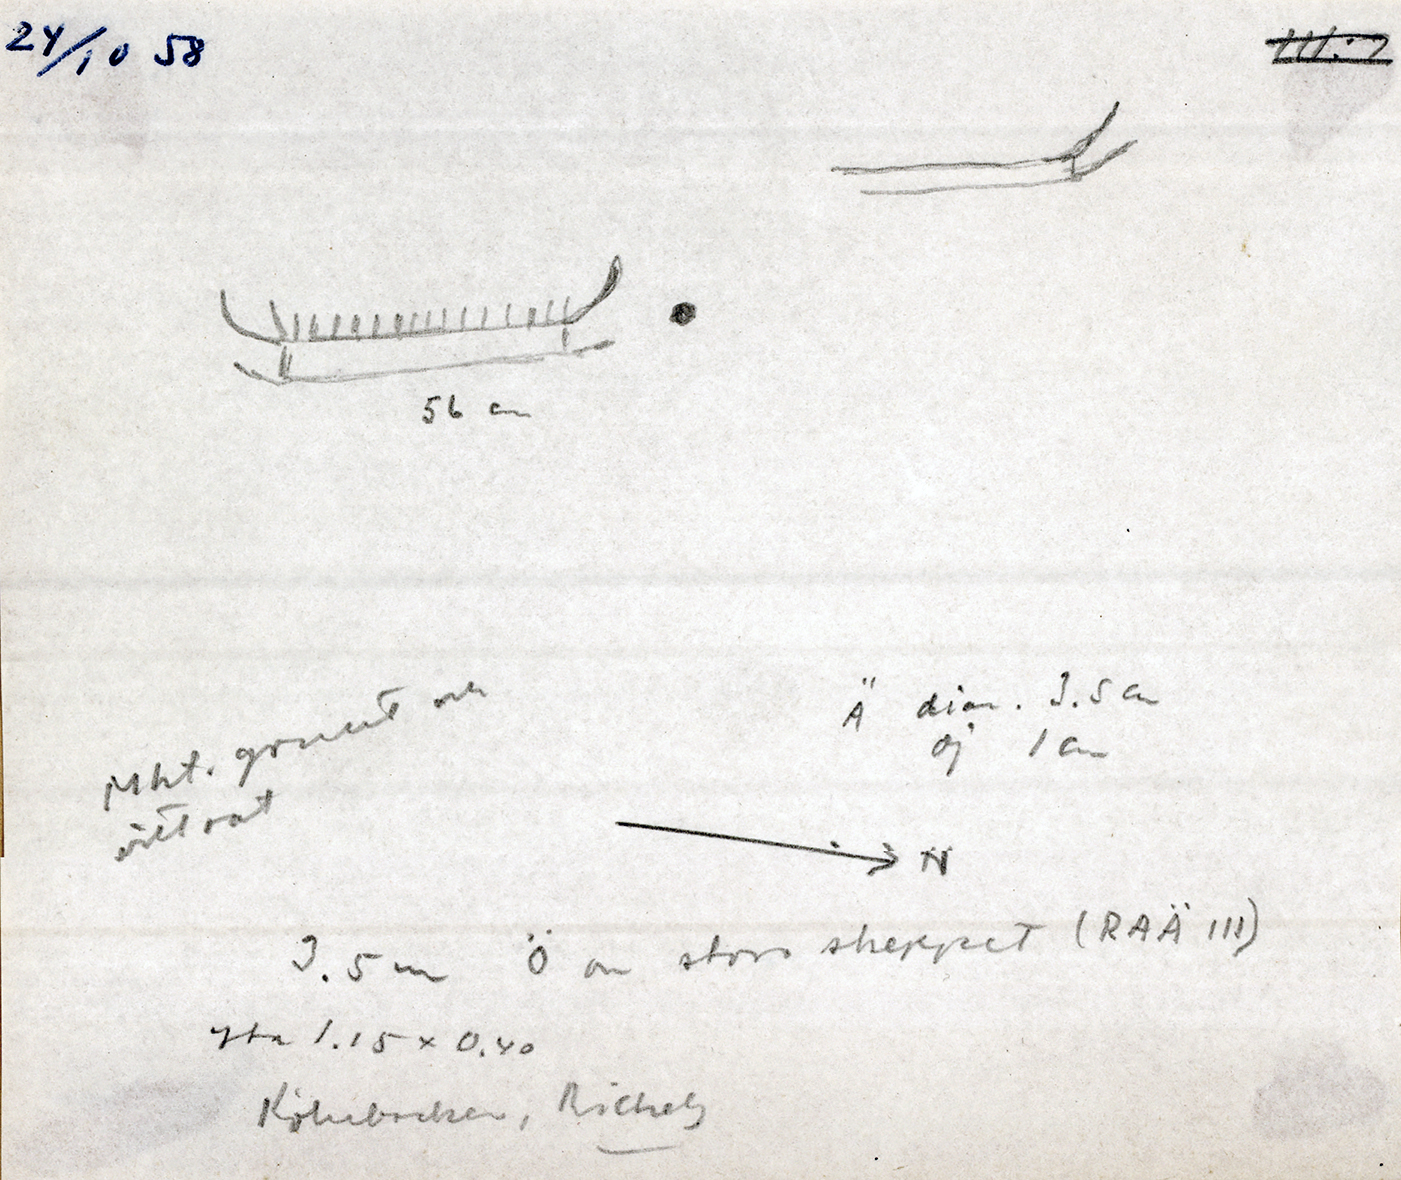 24/10 58
III:7
56 cm
Ä diam. 3.5 cm
dj 1 cm
Mkt. grunt och
vittrat
N
3.5 m Ö om stora skeppet (RAÄ 111)
yta 1.15 x 0.40